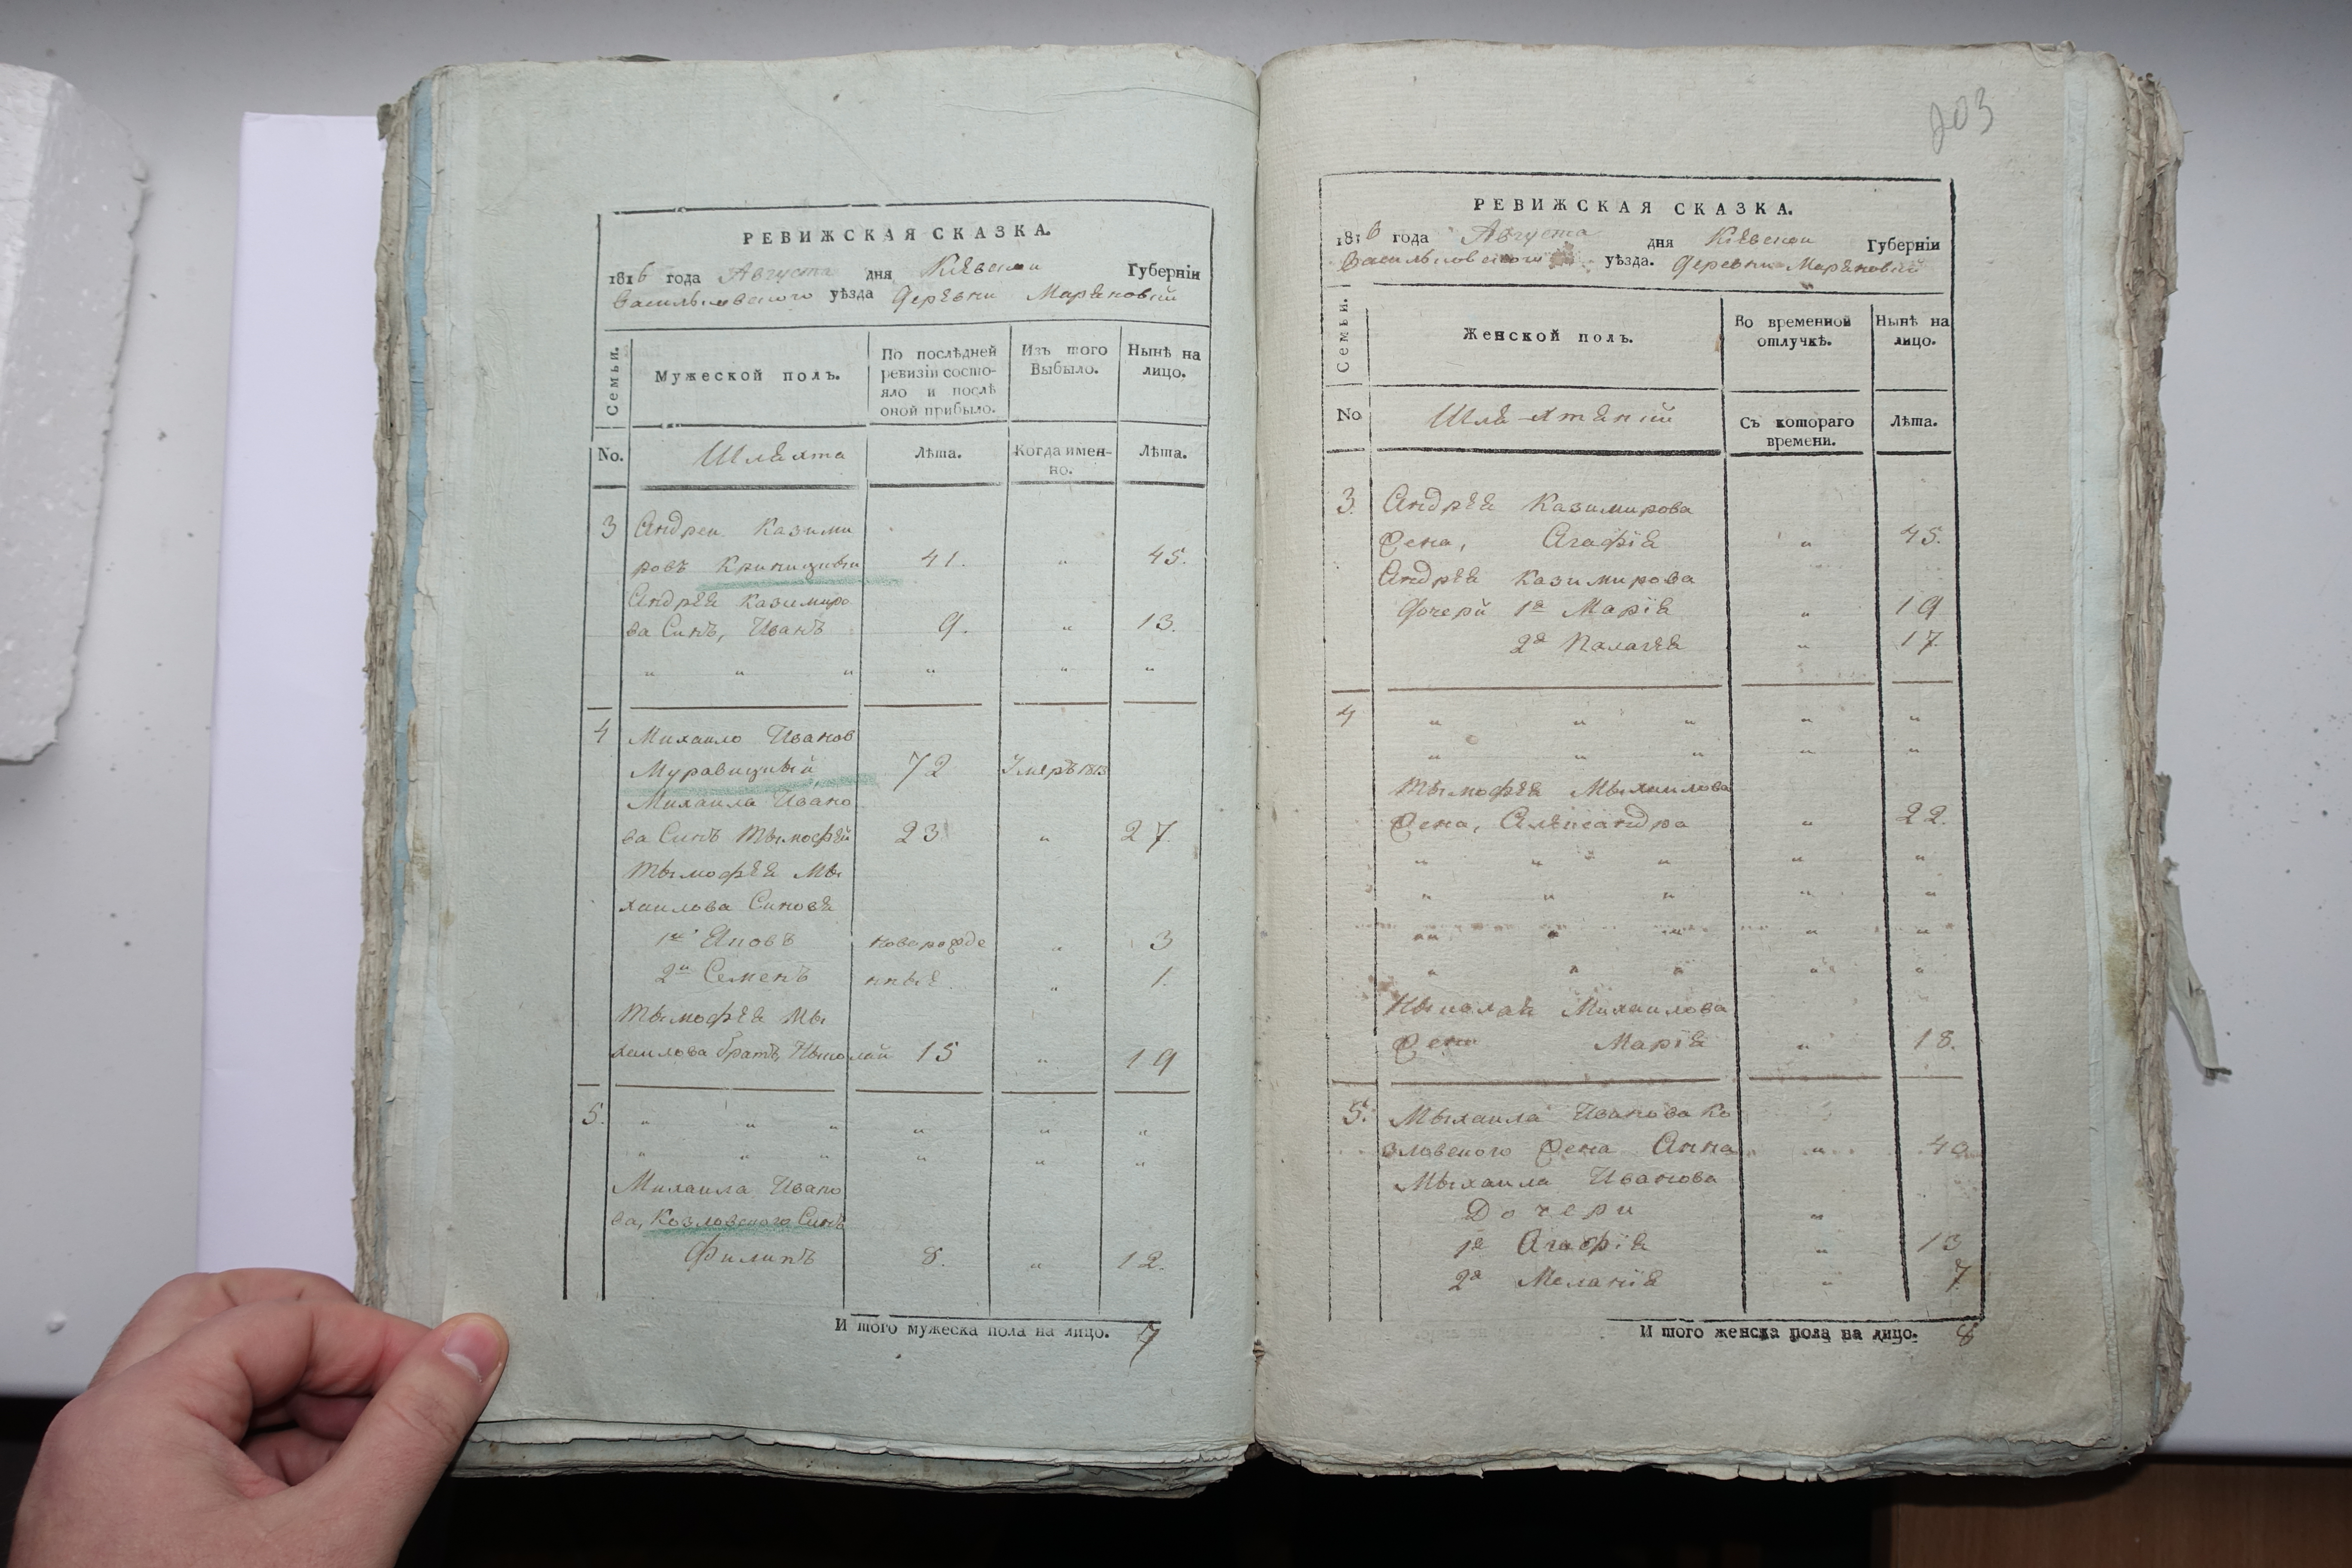 РЕВИЖСКАЯ СКАЗКА.
1816 года Августа дня Кіевской Губерніи
Васильковского уѣзда Деревни Маряновки
Семьи. Мужеской полъ. По послѣдней ревизіи состояло и послѣ оной прибыло. Изъ того Выбыло. Нынѣ на лицо.
No. Шляхта Лѣта. Когда именно. Лѣта.
3 Андрей Казими
ровъ Криницкый 41. " 45.
Андрея Казимиро
ва Синъ, Иванъ 9. " 13.
" " " " " "
4 Михаило Иванов
Муравицкый, 72 Умеръ 1813
Михаила Ивано
ва Синъ Тымофѣй 23 " 27.
Тымофея Мы
хаилова Синовя
1й Яковъ новорожде " 3
2й Семенъ нные. " 1.
Тымофея Мы
хаилова братъ, Ныколай 15 " 19
5. " " " " " "
" " " " " "
Михаила Ивано
ва, Козловского Синъ
Филипъ 8. " 12.
И того мужеска пола на лицо. 7
203
РЕВИЖСКАЯ СКАЗКА.
1816 года Августа дня Кіевской Губерніи
Васильковского уѣзда. Деревни Маряновки
Семьи. Женской полъ. Во временной отлучкѣ. Нынѣ на лицо.
No Шляхтянки Съ котораго времени. Лѣта.
3. Андрея Казимирова
Жена, Агафія " 45.
Андрея Казимирова
Дочери 1я Марія " 19
2я Палагея " 17.
4 " " " " "
" " " " "
Тымофея Мыхаилова
Жена, Александра " 22.
" " " " "
" " " " "
" " " " "
" " " " "
Ныколая Михаилова
Жена Марія " 18.
5. Мыхаила Иванова Ко
зловского Жена Анна " 40
Мыхаила Иванова
Дочери "
1я Агафія " 13
2я Меланія " 7.
И того женска пола на лицо. 8